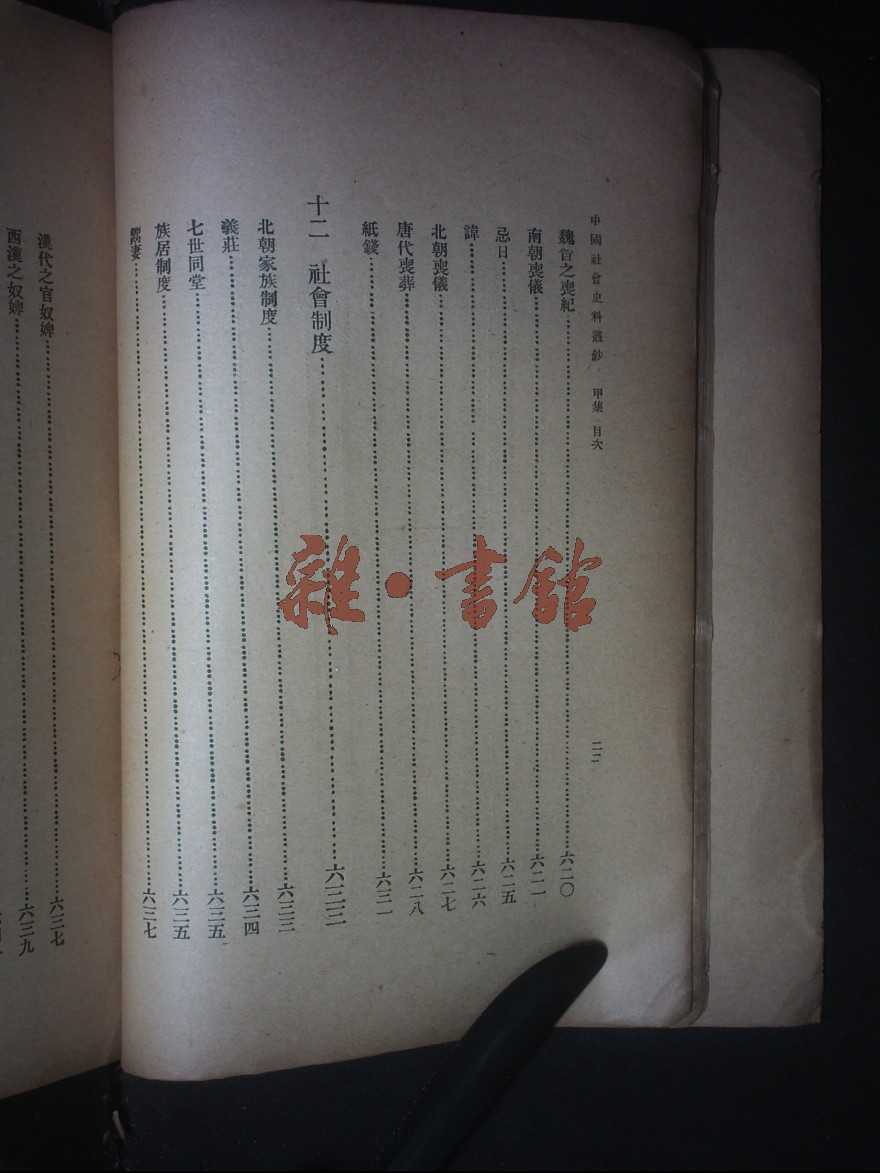 中國社會史料叢鈔 甲集 目次 二二
魏晉之喪紀……六二〇
南朝喪儀……六二一
忌日……六二五
諱……六二六
北朝喪儀……六二七
唐代喪葬……六二八
紙錢……六三一
十二 社會制度……六三三
北朝家族制度……六三三
義莊……六三四
七世同堂……六三五
族居制度……六三五
鬻妻……六三七
漢代之官奴婢……六三七
西漢之奴婢……六三九
雜·書館